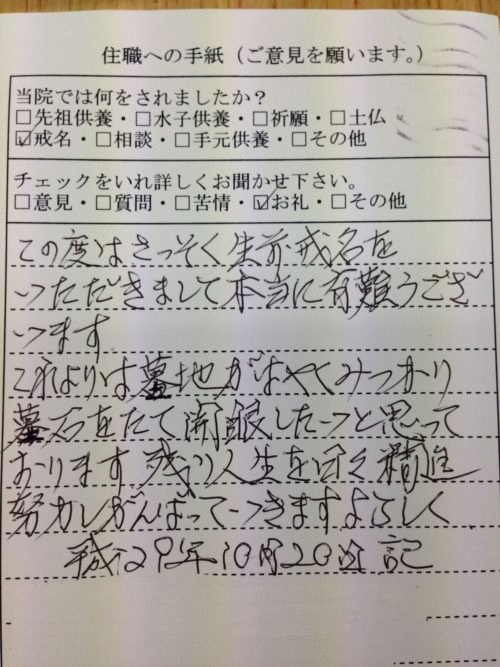 住職への手紙（ご意見を願います。）
当院では何をされましたか？
□先祖供養・□水子供養・□祈願・□土仏
☑戒名・□相談・□手元供養・□その他
チェックをいれ詳しくお聞かせ下さい。
□意見・□質問・□苦情・☑お礼・□その他
この度はさっそく生前戒名を
いただきまして本当に有難うござ
います
これよりは墓地がはやくみつかり
墓石をたて開眼したいと思って
おります残り人生を日々精進
努力しがんばっていきますよろしく
平成29年10月20日記